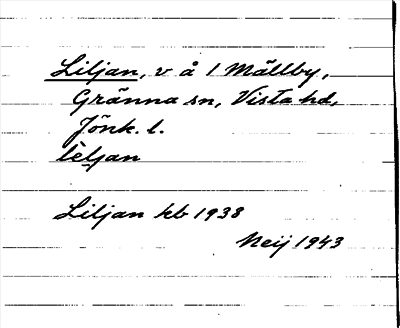 Liljan, v å 1 Mällby,
Gränna sn, Vista hd,
Jönk. l.
lèljan
Liljan kb 1938
Neij 1943